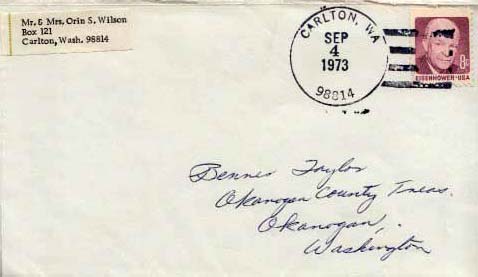 Mr. & Mrs. Orin S. Wilson
Box 121
Carlton, Wash. 98814
CARLTON, WA
SEP
4
1973
98814
8c
EISENHOWER·USA
Bennes Taylor
Okanogan County Treas.
Okanogan,
Washington